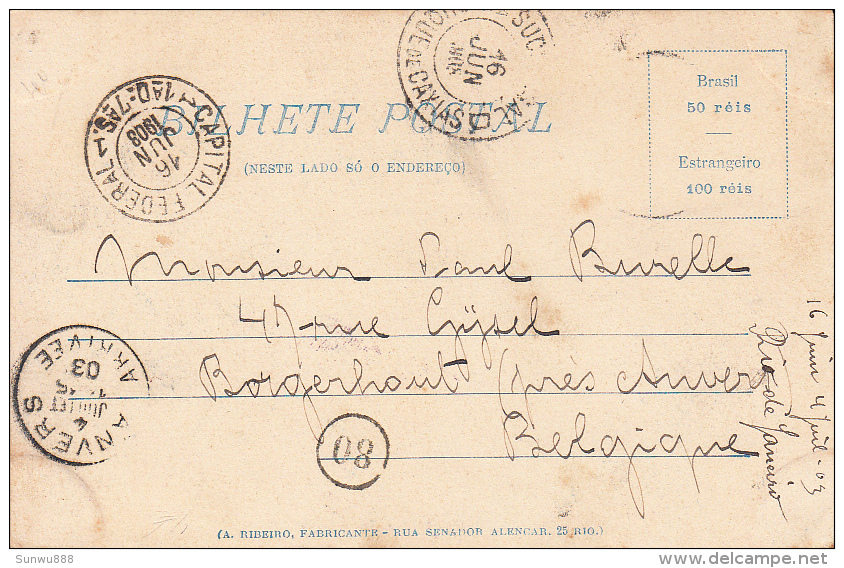 BILHETE POSTAL
(NESTE LADO SÓ O ENDEREÇO)
Brasil
50 réis
Estrangeiro
100 réis
CAPITAL FEDERAL
1ªD-7ªS.
16
JUN
1903
SUC
DE CAXIAS
16
JUN
1903
Monsieur Paul Burelle
47 rue Gÿsel
Borgerhout (près Anvers
Belgique
16 Juin 4 Juil-03
Rio de Janeiro
ANVERS
ARRIVÉE
4
JUILLET
03
80
(A. RIBEIRO, FABRICANTE - RUA SENADOR ALENCAR, 25 RIO.)
Sunwu888
delcampe.net